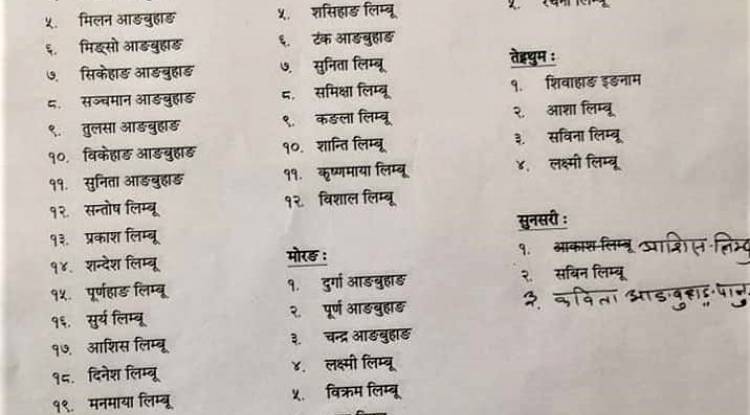 ५. मिलन आङबुहाङ
६. मिङ्सो आङबुहाङ
७. सिकेहाङ आङबुहाङ
८. सञ्चमान आङबुहाङ
९. तुलसा आङबुहाङ
१०. विकेहाङ आङबुहाङ
११. सुनिता आङबुहाङ
१२. सन्तोष लिम्बू
१३. प्रकाश लिम्बू
१४. शन्देश लिम्बू
१५. पूर्णहाङ लिम्बू
१६. सुर्य लिम्बू
१७. आशिस लिम्बू
१८. दिनेश लिम्बू
१९. मनमाया लिम्बू
५. शसिहाङ लिम्बू
६. टंक आङबुहाङ
७. सुनिता लिम्बू
८. समिक्षा लिम्बू
९. कङला लिम्बू
१०. शान्ति लिम्बू
११. कृष्णमाया लिम्बू
१२. विशाल लिम्बू
मोरङ :
१. दुर्गा आङबुहाङ
२. पूर्ण आङबुहाङ
३. चन्द्र आङबुहाङ
४. लक्ष्मी लिम्बू
५. विक्रम लिम्बू
५. रचना लिम्बू
तेह्रथुम :
१. शिवाहाङ इङनाम
२. आशा लिम्बू
३. सविना लिम्बू
४. लक्ष्मी लिम्बू
सुनसरी :
१. आकाश लिम्बू आशिस लिम्बु
२. सविन लिम्बू
३. कविता आङबुहाङ